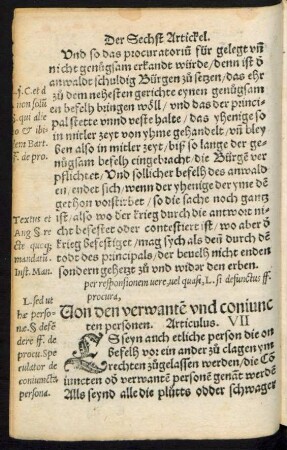 Der Sechst Artickel.
Und so das procuratoriũ für gelegt vñ
nicht genůgsam erkandt würde / denn ist ð
anwaldt schuldig Bürgen zů setzen / das ehr
zů dem nehesten gerichte eynen genůgsam
en befelh bringen wöll / vnd das der princi
pal stette vnnd veste halte / das yhenige so
in mitler zeyt von yhme gehandelt / vñ bley
ben also in mitler zeyt / biß so lange der ge
nůgsam befelh eingebracht / die Bürgē ver
pflichtet / Vnd sollicher befelh des anwald
en / endet sich / wenn der yhenige der yme dē
gethon vorstirbet / so die sache noch gantz
ist / also wo der krieg durch die antwort ni-
cht befestet oder contestiert ist / wo aber ð
krieg befestiget / mag sych als deñ durch dē
todt des principals / der beuelh nicht enden
sondern gehetzt zů vnd widar den erben.
per responsionem vere, uel quasi, L. si defunctus ff.
procura,
Von den verwantē vnd coniunc
ten personen. Articulus. VII
ES seyn auch etliche person die on
befelh vor ein ander zů clagen ym
rechten zůgelassen werden / die Cō
iuncten oð verwantē personē genāt werdē
Als seynd alle die plůtts odder schwager
.ſ. C. et ð
non solũ
§. qui alie
no & ibi-
dem Bart.
ff. de pro.
Textus et
Ang §. re
cte quoq;
mandatũ.
Inst. Man.
L. sed ut
he perso-
ne. § defen
dere ff. de
procu. Spe
culator de
coniuncta
persona.